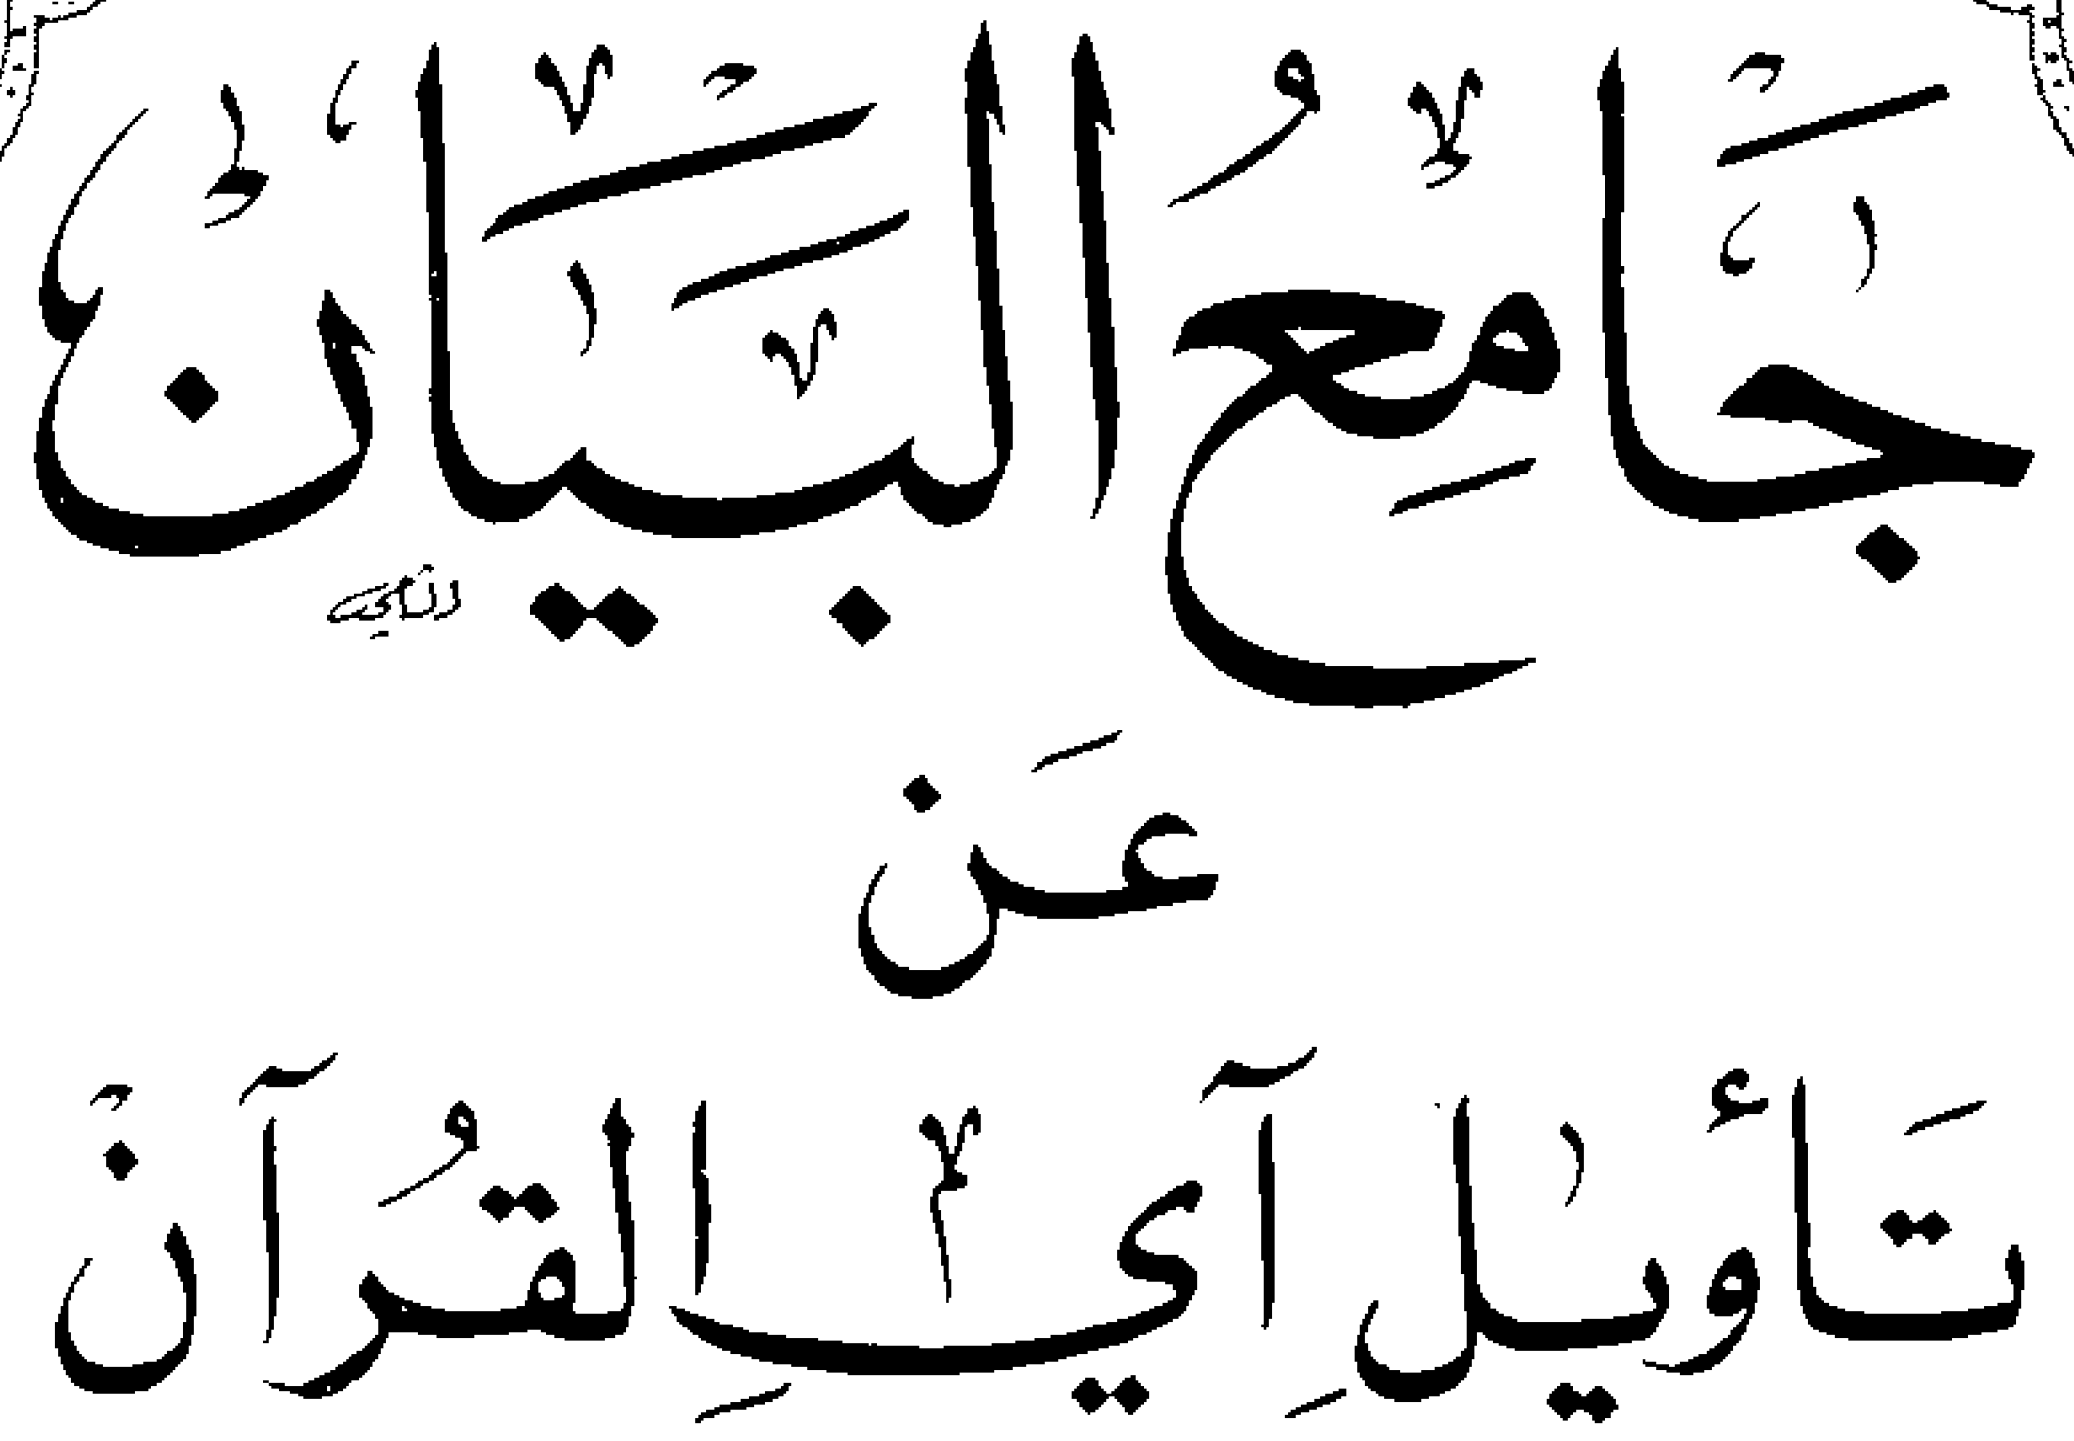 جَامِعُ البَيَان
عَن
تَأويلِ آيِ القُرآن